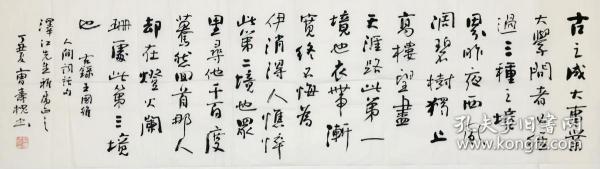 古之成大事業
大學問者必經
過三種之境
界昨夜西風
凋碧樹獨上
高樓望盡
天涯路此第一
境也衣帶漸
寬終不悔為
伊消得人憔悴
此第二境也眾
里尋他千百度
驀然回首那人
却在燈火闌
珊處此第三境
也 右錄王國維
人間詞話句
澤江先生雅屬正之
丁丑夏 曹壽槐書